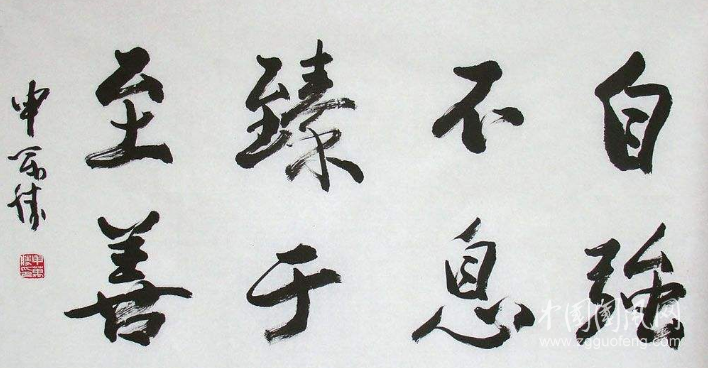 自強
不息
臻于
至善
申萬勝
中国国风网
www.zgguofeng.com